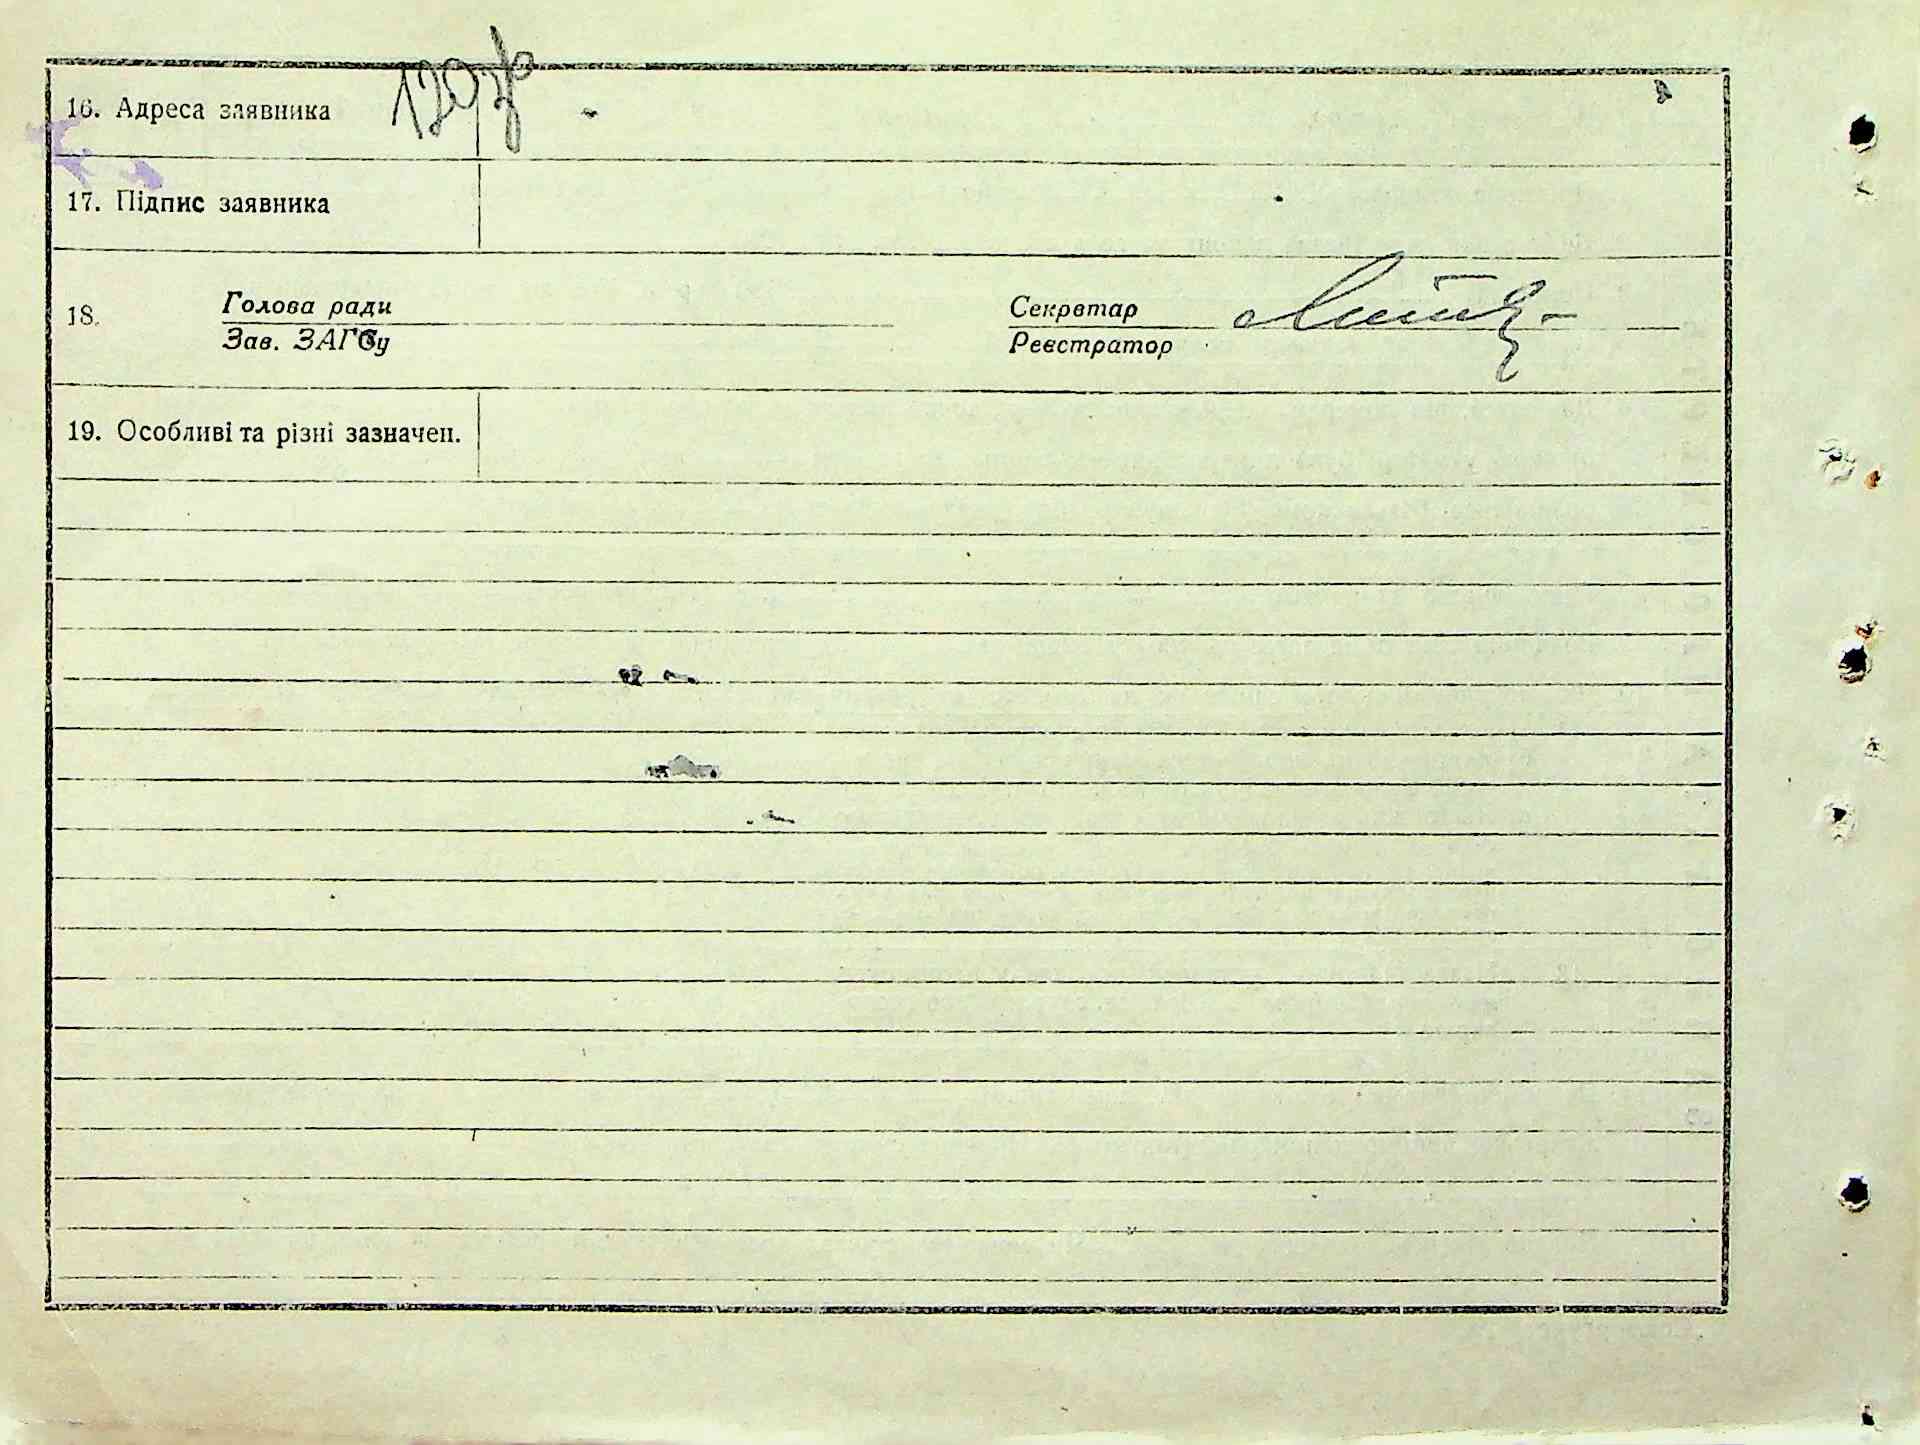 120 зв
16. Адреса заявника
17. Підпис заявника
18. Голова ради Секретар
Зав. ЗАГСу Реєстратор
19. Особливі та різні зазначен.